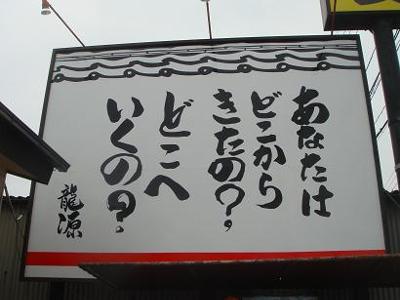 あなたは
どこから
きたの?
どこへ
いくの?
龍源